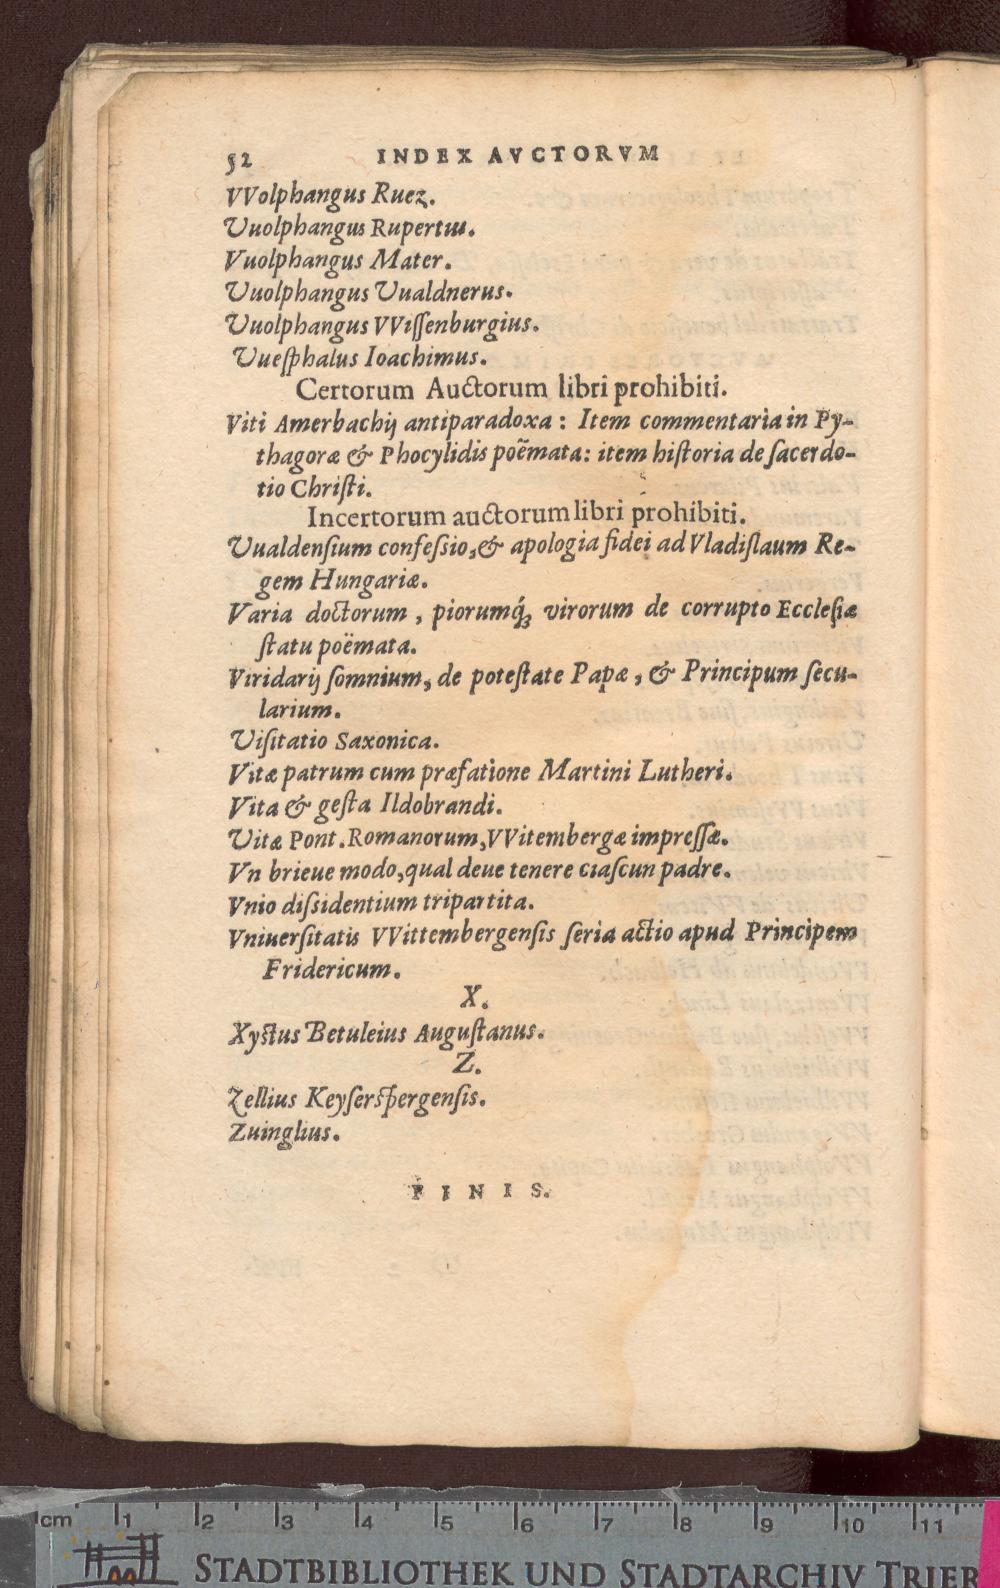 52 INDEX AVCTORVM
VVolphangus Ruez.
Vuolphangus Rupertus.
Vuolphangus Mater.
Vuolphangus Vualdnerus.
Vuolphangus VVissenburgius.
Vuesphalus Ioachimus.
Certorum Auctorum libri prohibiti.
Viti Amerbachij antiparadoxa : Item commentaria in Py-
thagoræ & Phocylidis poëmata: item historia de sacerdo-
tio Christi.
Incertorum auctorum libri prohibiti.
Vualdensium confessio, & apologia fidei ad Vladislaum Re-
gem Hungariæ.
Varia doctorum , piorumq́; virorum de corrupto Ecclesiæ
statu poëmata.
Viridarij somnium, de potestate Papæ , & Principum secu-
larium.
Visitatio Saxonica.
Vitæ patrum cum præfatione Martini Lutheri.
Vita & gesta Ildobrandi.
Vitæ Pont. Romanorum, VVitembergæ impressæ.
Vn brieue modo, qual deue tenere ciascun padre.
Vnio dissidentium tripartita.
Vniuersitatis VVittembergensis seria actio apud Principem
Fridericum.
X.
Xystus Betuleius Augustanus.
Z.
Zellius Keysersbergensis.
Zuinglius.
FINIS.
cm 1 2 3 4 5 6 7 8 9 10 11
STADTBIBLIOTHEK UND STADTARCHIV TRIER